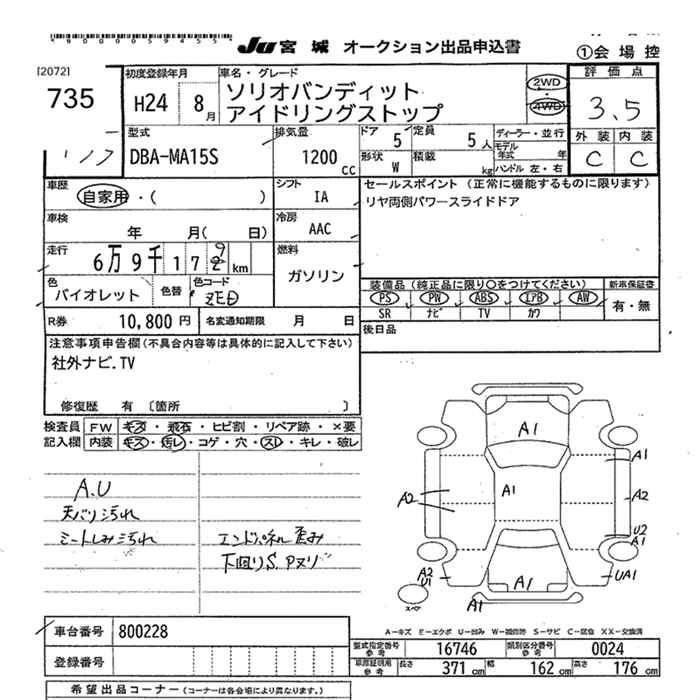 *9000059455*
JU 宮城 オークション出品申込書
①会場控
[2072]
735
初度登録年月
H24 8月
車名・グレード
ソリオバンディット
アイドリングストップ
2WD
4WD
評価点
3.5
外装 内装
C C
型式
DBA-MA15S
排気量
1200 CC
ドア 5
定員 5人
形状 W
積載 kg
ディーラー・並行
モデル年式 年
ハンドル 左・右
車歴
自家用・( )
シフト
IA
セールスポイント (正常に機能するものに限ります)
リヤ両側パワースライドドア
車検
年 月( 日)
冷房
AAC
走行
6万9千172km
9
燃料
ガソリン
色
バイオレット
色替
色コード
ZED
装備品 (純正品に限り○をつけてください)
PS PW ABS エアB AW
SR ナビ TV カワ
新車保証書
有・無
R券 10,800円
名変通知期限 月 日
後日品
注意事項申告欄(不具合内容等は具体的に記入して下さい)
社外ナビ.TV
修復歴 有 〔箇所 〕
検査員 FW キズ・飛石・ヒビ割・リペア跡・×要
記入欄 内装 キズ・汚レ・コゲ・穴・スレ・キレ・破レ
A.U
天バリ汚れ
シートしみ汚れ
エンドパネル歪み
下回りS.Pヌリ
A1
A1
A1
A2
A1
A2
U2
A1
A2
U1
UA1
A1
A1
スペア
A-キズ E-エクボ U-凹み W-補修跡 S-サビ C-腐食 XX-交換済
車台番号 800228
登録番号
型式指定番号 参考 16746
類別区分番号 参考 0024
車庫証明用 参考 長さ 371cm 幅 162cm 高さ 176cm
希望出品コーナー (コーナーは各会場により異なります。)